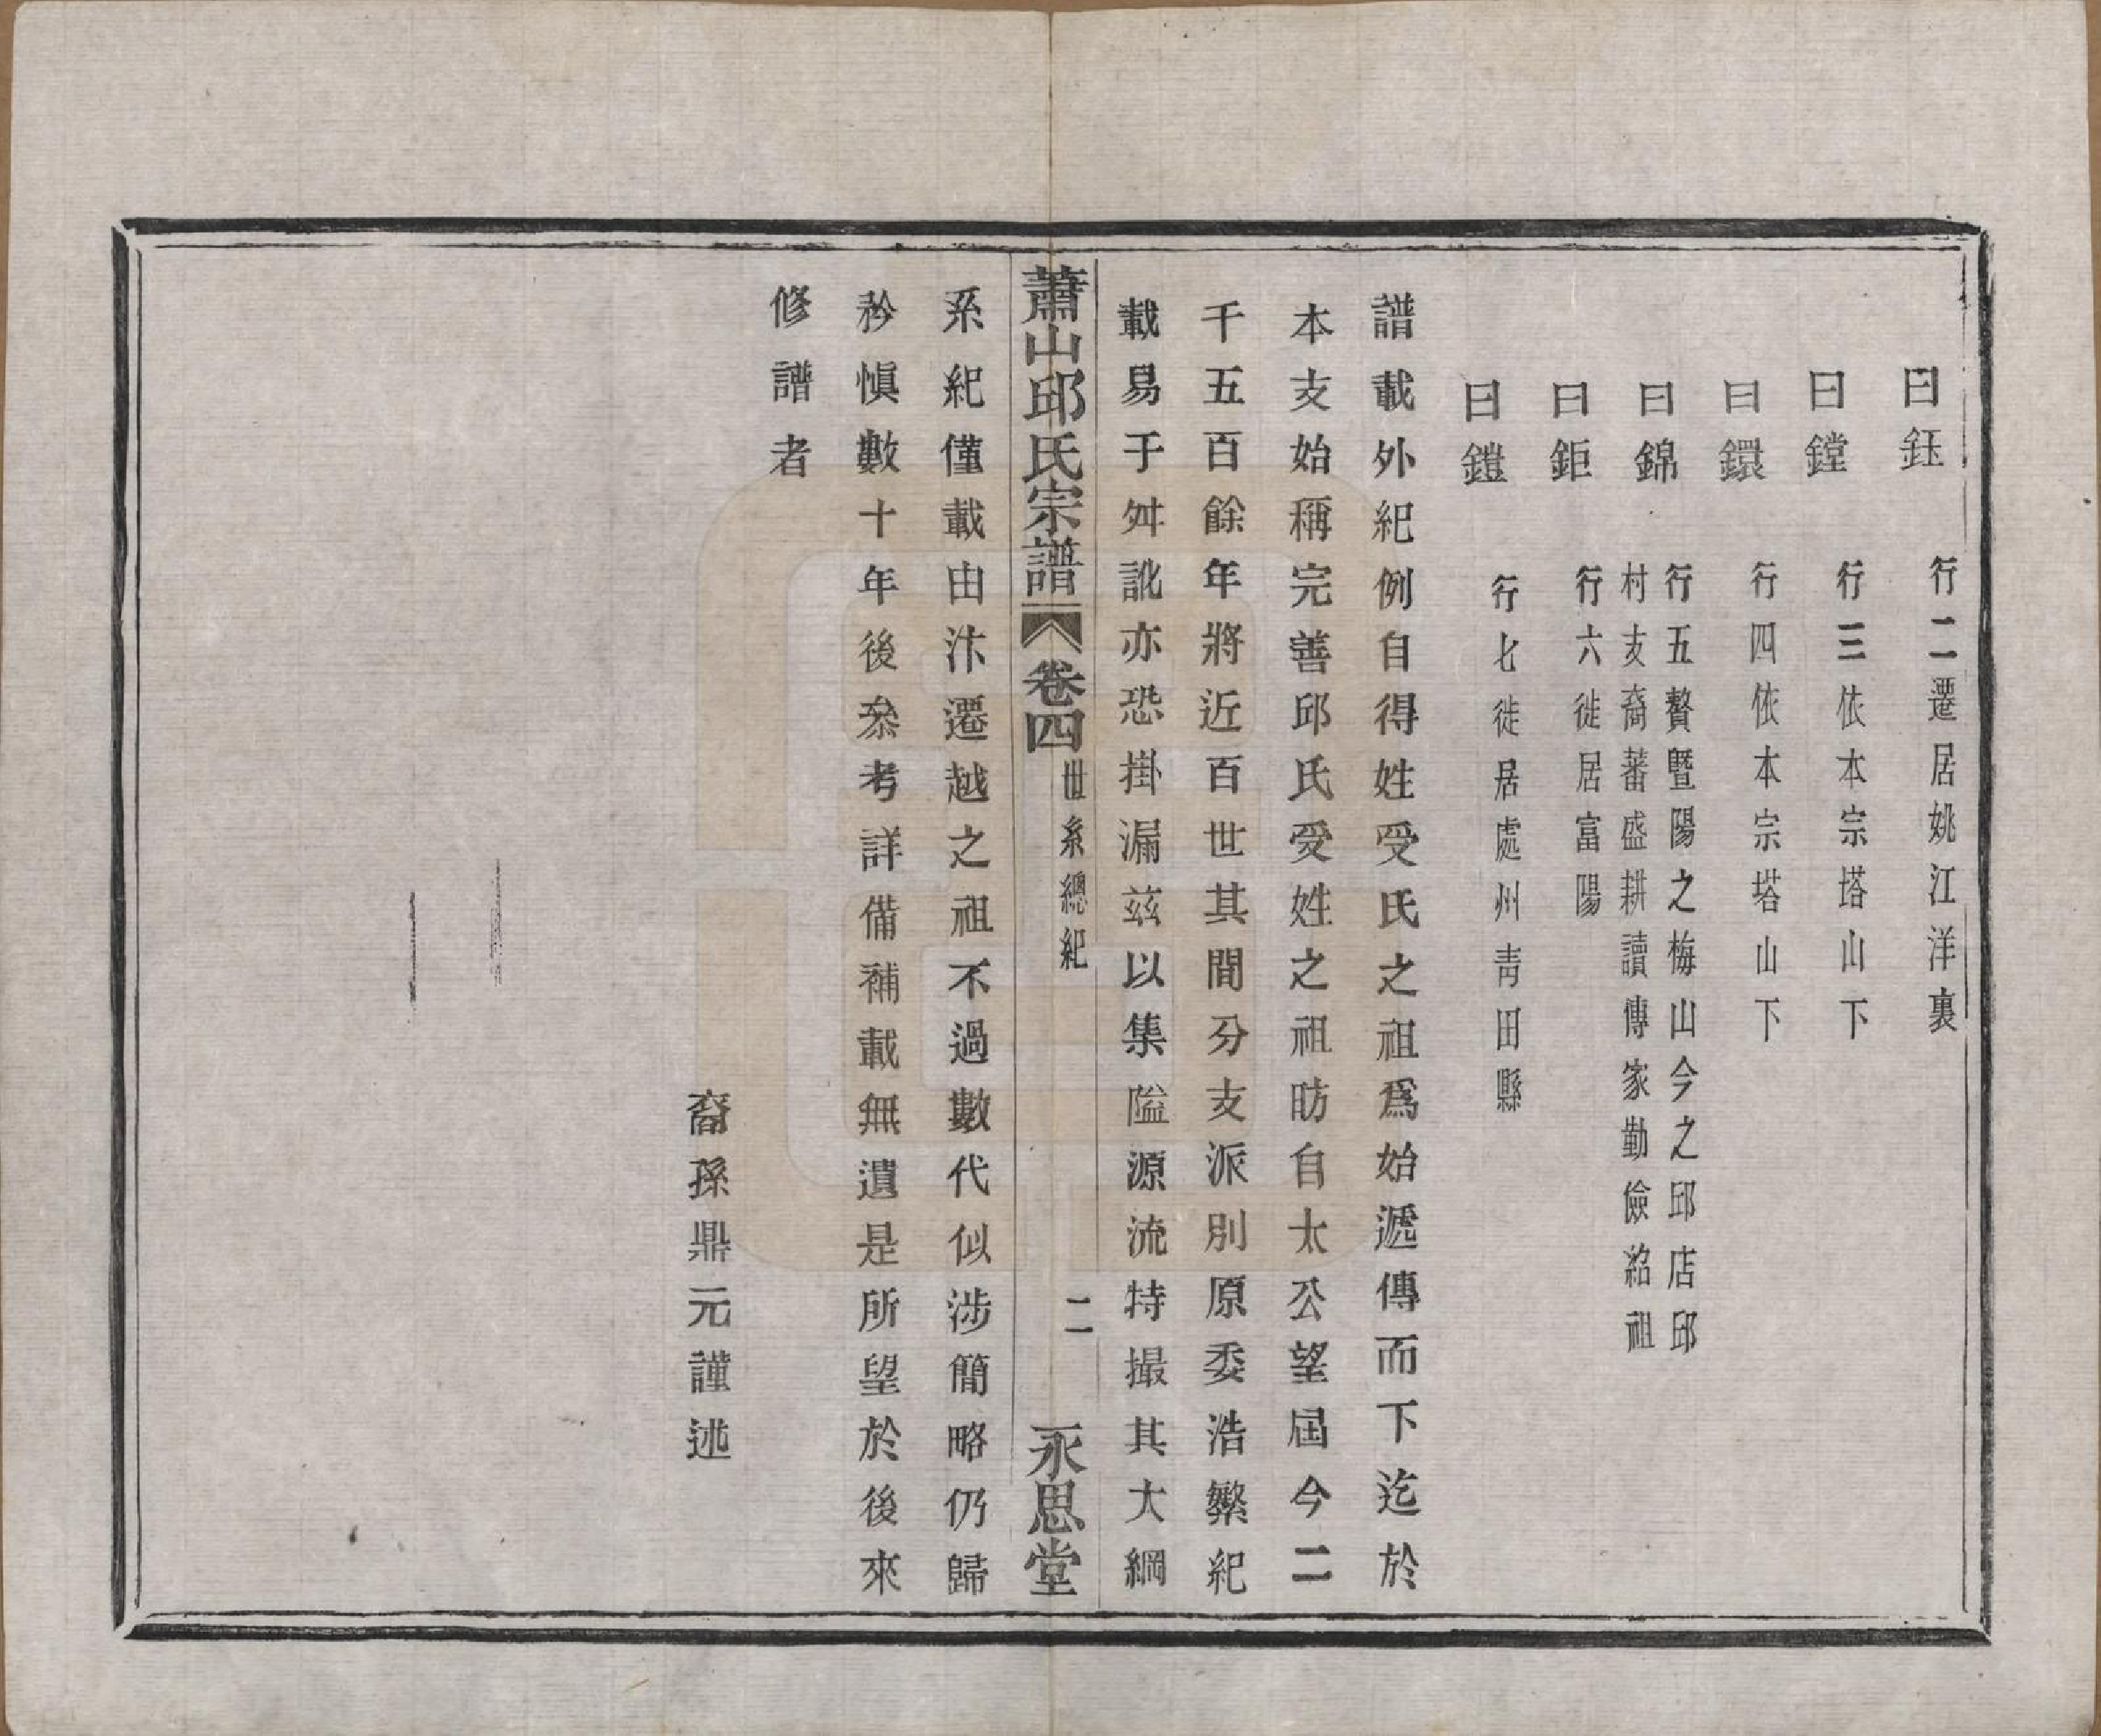 曰鈺　行二遷居姚江洋裏
曰鏜　行三依本宗塔山下
曰鐶　行四依本宗塔山下
曰錦　行五贅暨陽之梅山今之邱店邱
村支裔蕃盛耕讀傳家勤儉紹祖
曰鉅　行六徙居富陽
曰鎧　行七徙居處州靑田縣
譜載外紀例自得姓受氏之祖爲始遞傳而下迄於
本支始稱完善邱氏受姓之祖昉自太公望屆今二
千五百餘年將近百世其間分支派別原委浩繁紀
載易于舛訛亦恐掛漏茲以集隘源流特撮其大綱
蕭山邱氏宗譜　卷四　世系總紀　二　永思堂
系紀僅載由汴遷越之祖不過數代似涉簡略仍歸
矜愼數十年後叅考詳備補載無遺是所望於後來
修譜者
裔孫鼎元謹述